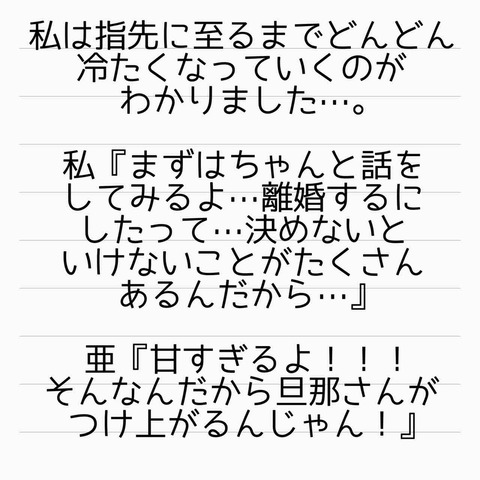 私は指先に至るまでどんどん
冷たくなっていくのが
わかりました…。
私『まずはちゃんと話を
してみるよ…離婚するに
したって…決めないと
いけないことがたくさん
あるんだから…』
亜『甘すぎるよ！！！
そんなんだから旦那さんが
つけ上がるんじゃん！』